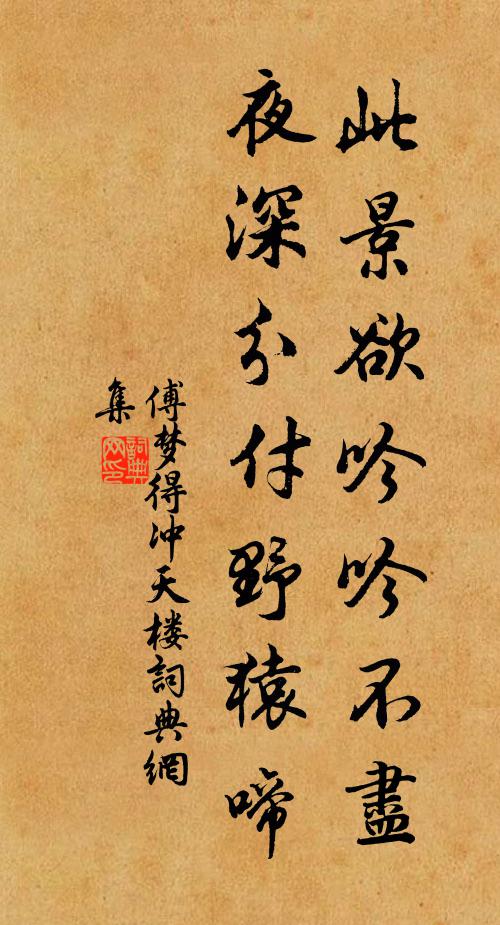 此景欲吟吟不盡
夜深分付野猿啼
傅梦得冲天楼詞典網
集
詞典网印